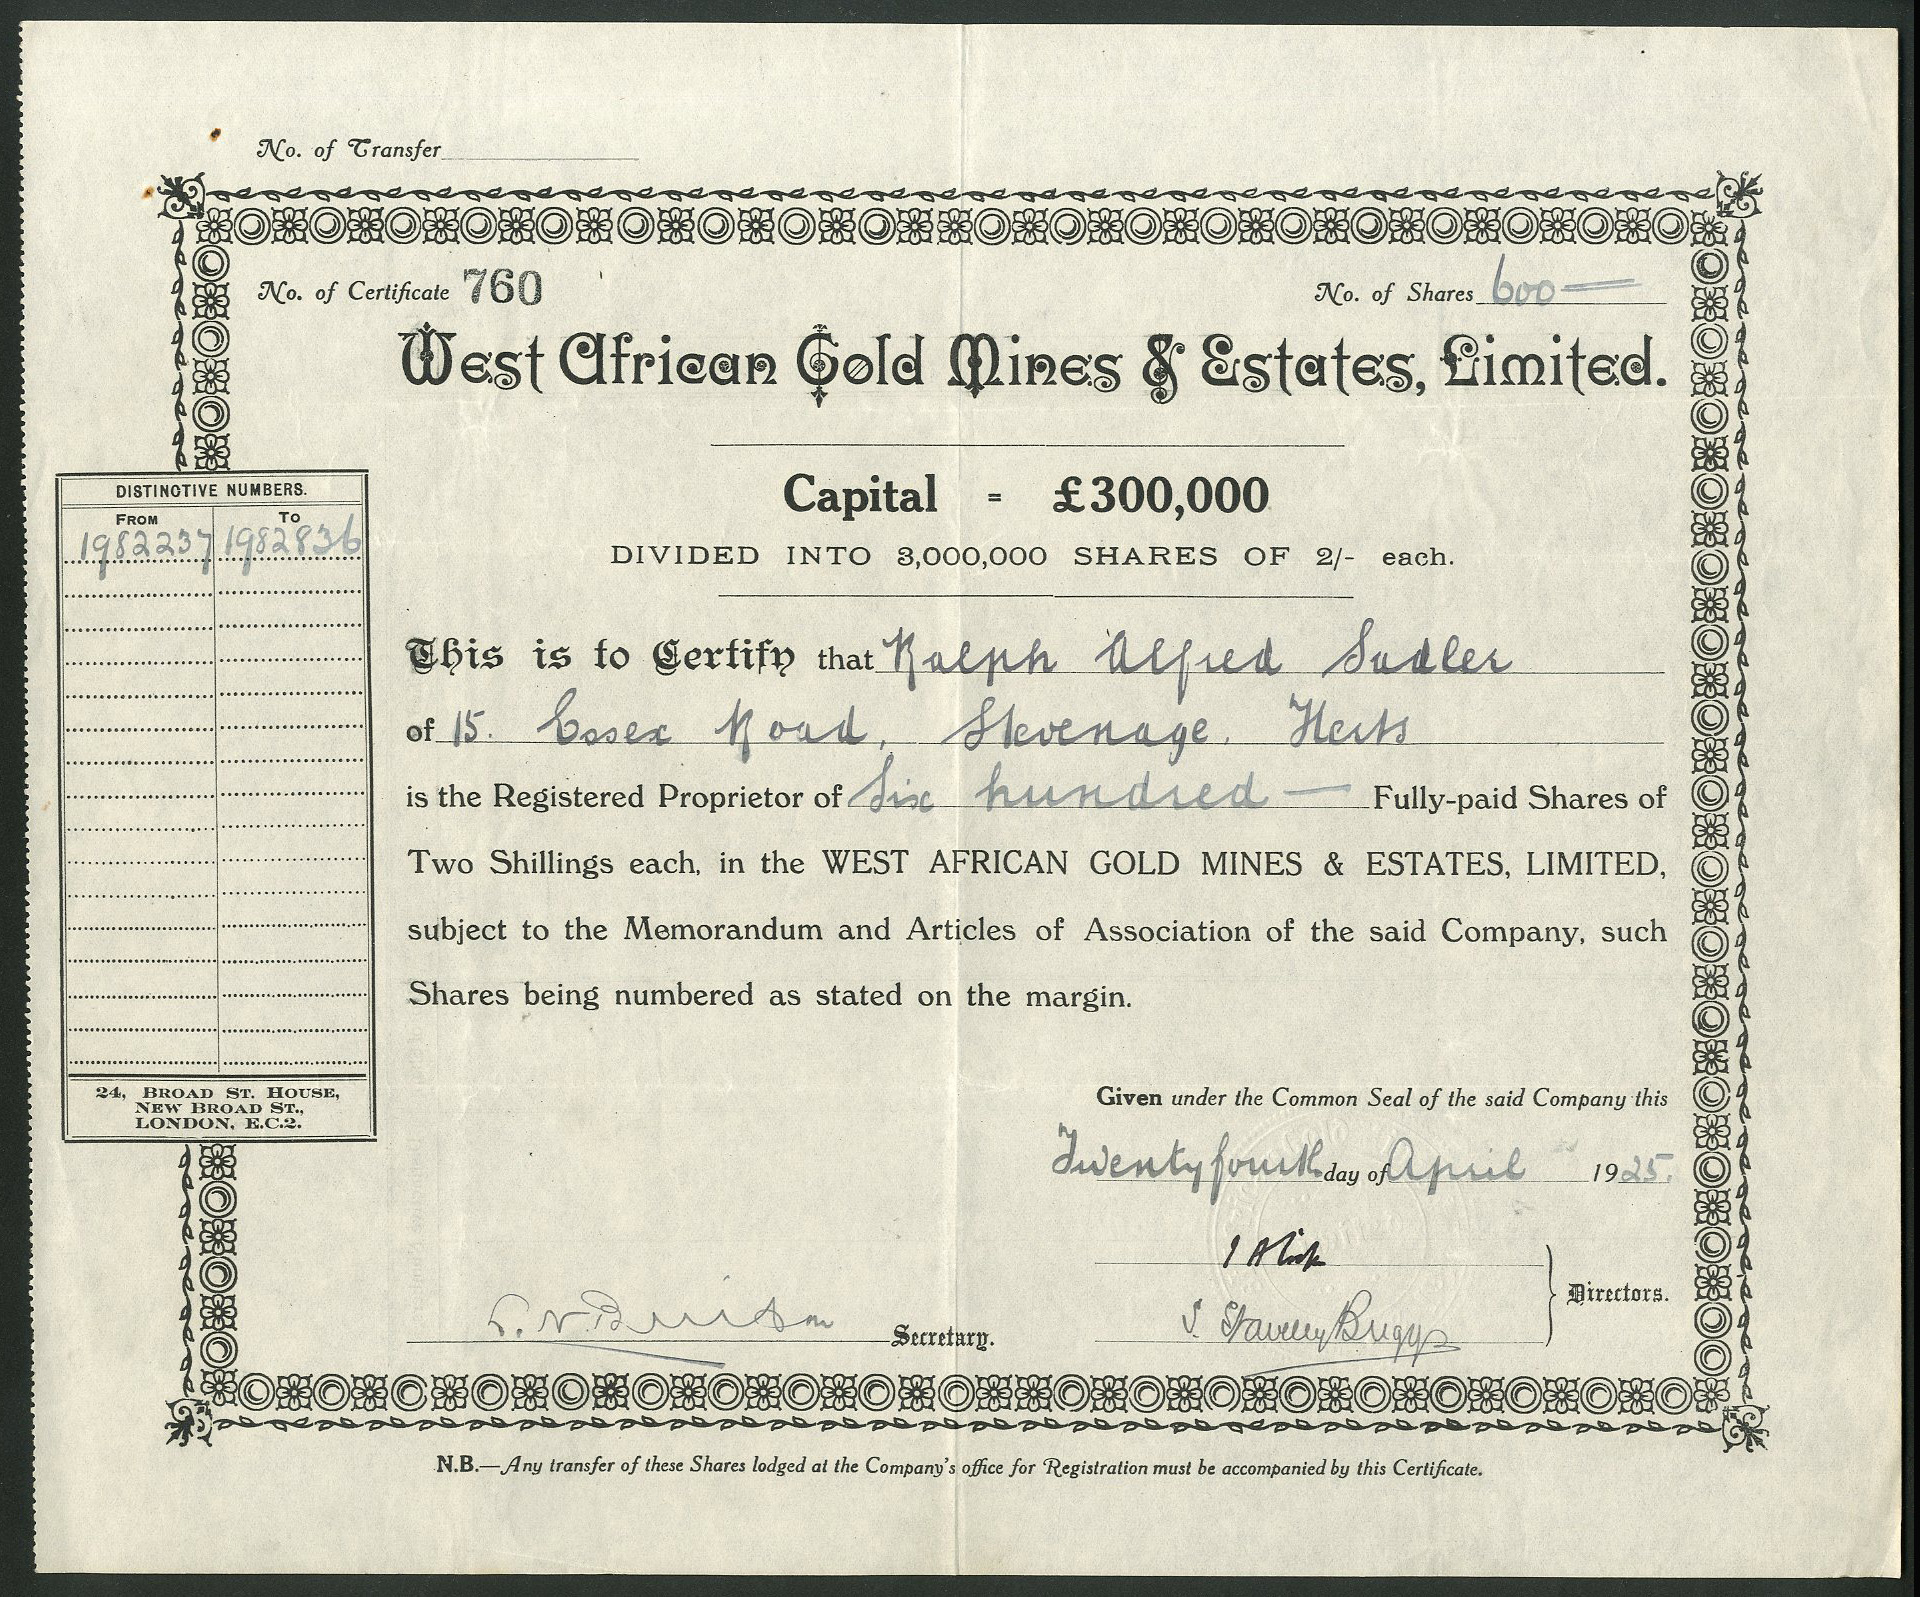 No. of Transfer
No. of Certificate 760
No. of Shares 600
West African Gold Mines & Estates, Limited.
Capital = £300,000
DIVIDED INTO 3,000,000 SHARES OF 2/- each.
DISTINCTIVE NUMBERS.
FROM TO
1982237 1982836
24, BROAD ST. HOUSE,
NEW BROAD ST.,
LONDON, E.C.2.
This is to Certify that Ralph Alfred Sadler
of 15. Essex Road, Stevenage. Herts
is the Registered Proprietor of Six hundred — Fully-paid Shares of
Two Shillings each, in the WEST AFRICAN GOLD MINES & ESTATES, LIMITED,
subject to the Memorandum and Articles of Association of the said Company, such
Shares being numbered as stated on the margin.
Given under the Common Seal of the said Company this
Twenty fourth day of April 1925.
Directors.
Staveley Briggs
Secretary.
N.B.—Any transfer of these Shares lodged at the Company's office for Registration must be accompanied by this Certificate.